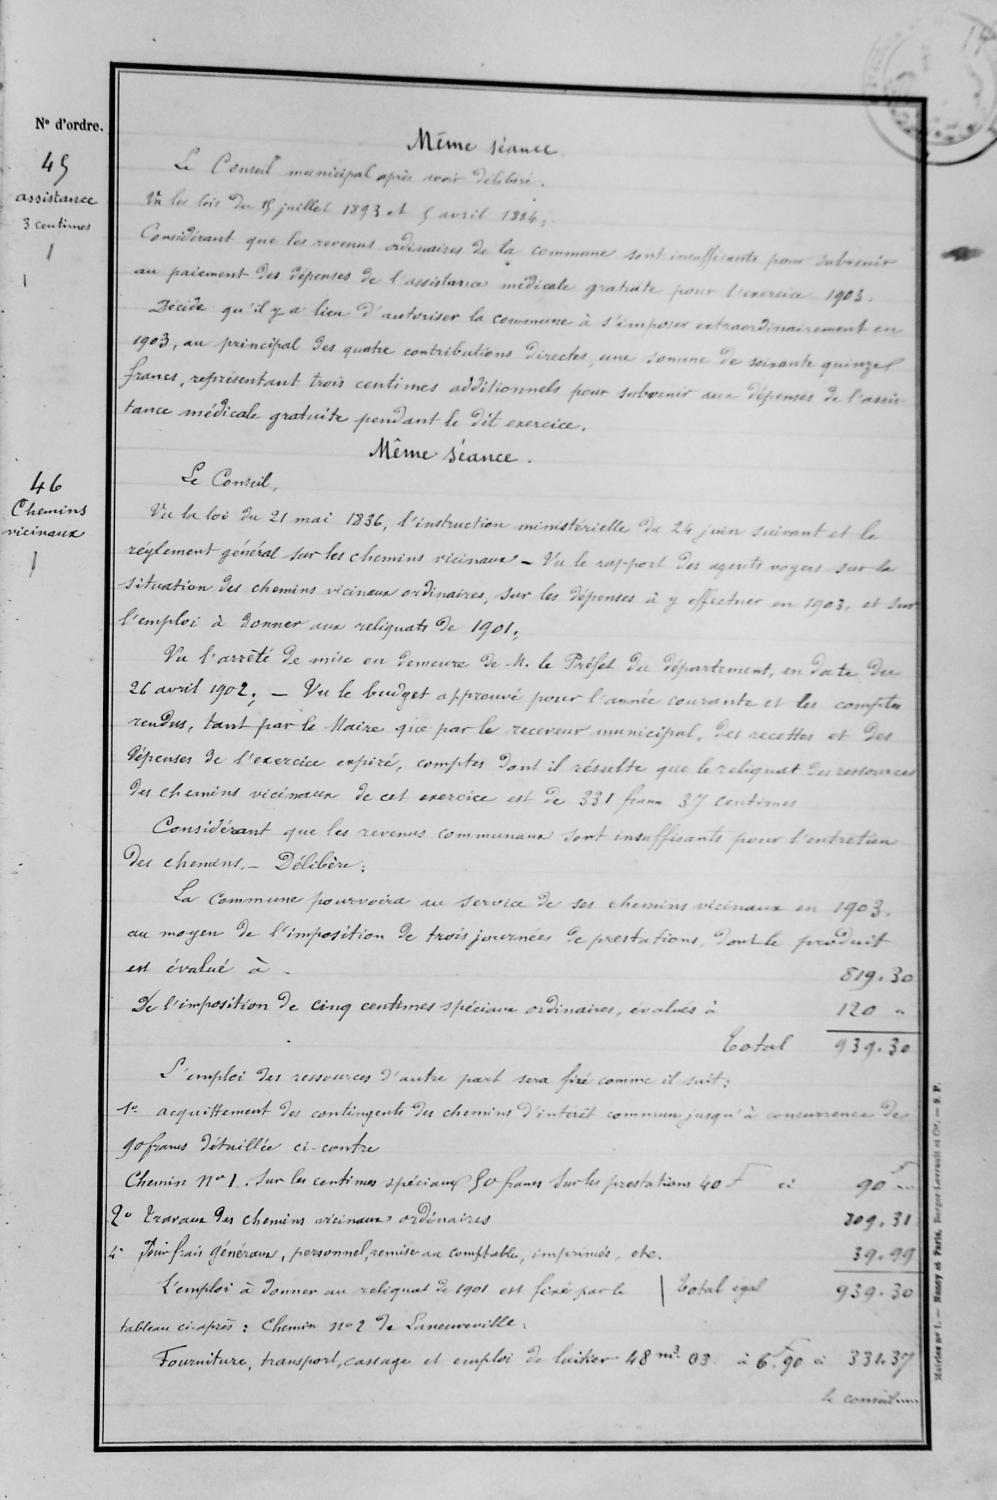 Nº d'ordre.
Même séance
45
assistance
3 centimes
Le Conseil municipal après avoir délibéré.
Vu les lois du 15 juillet 1893 et 5 avril 1884,
Considérant que les revenus ordinaires de la commune sont insuffisants pour subvenir
au paiement des dépenses de l'assistance médicale gratuite pour l'exercice 1903.
Décide qu'il y a lieu d'autoriser la commune à s'imposer extraordinairement en
1903, au principal des quatre contributions directes, une somme de soixante quinze
francs, représentant trois centimes additionnels pour subvenir aux dépenses de l'assis-
tance médicale gratuite pendant le dit exercice.
Même séance.
46
Chemins
vicinaux
Le Conseil,
Vu la loi du 21 mai 1836, l'instruction ministérielle du 24 juin suivant et le
réglement général sur les chemins vicinaux – Vu le rapport des agents voyers sur la
situation des chemins vicinaux ordinaires, sur les dépenses à y effectuer en 1903, et sur
l'emploi à donner aux reliquats de 1901;
Vu l'arrêté de mise en demeure de M. le Préfet du département, en date du
26 avril 1902; – Vu le budget approuvé pour l'année courante et les comptes
rendus, tant par le Maire que par le receveur municipal, des recettes et des
dépenses de l'exercice expiré, comptes dont il résulte que le reliquat des ressources
des chemins vicinaux de cet exercice est de 331 francs 37 centimes
Considérant que les revenus communaux sont insuffisants pour l'entretien
des chemins. – Délibère:
La Commune pourvoira au service de ses chemins vicinaux en 1903.
au moyen de l'imposition de trois journées de prestations, dont le produit
est évalué à - 819.30
De l'imposition de cinq centimes spéciaux ordinaires, évalués à 120 "
Total 939.30
L'emploi des ressources d'autre part sera fixé comme il suit:
1º acquittement des contingents des chemins d'intérêt commun jusqu'à concurrence de
90 francs détaillée ci-contre
Chemin nº 1. Sur les centimes spéciaux 50 francs Sur les prestations 40 F ci 90 F "
2º Travaux des chemins vicinaux ordinaires 809.31
4º Pour frais généraux, personnel, remise au comptable, imprimés, etc. 39.99
L'emploi à donner au reliquat de 1901 est fixé par le Total égal 939.30
tableau ci-après: Chemin nº 2 de Laneuveville.
Fourniture, transport, cassage et emploi de 48 m³ 03 à 6 F 90 ci 331.37
le conseil
Mairies nº 1. — Nancy et Paris. Berger-Levrault et Cie. — 9. P.